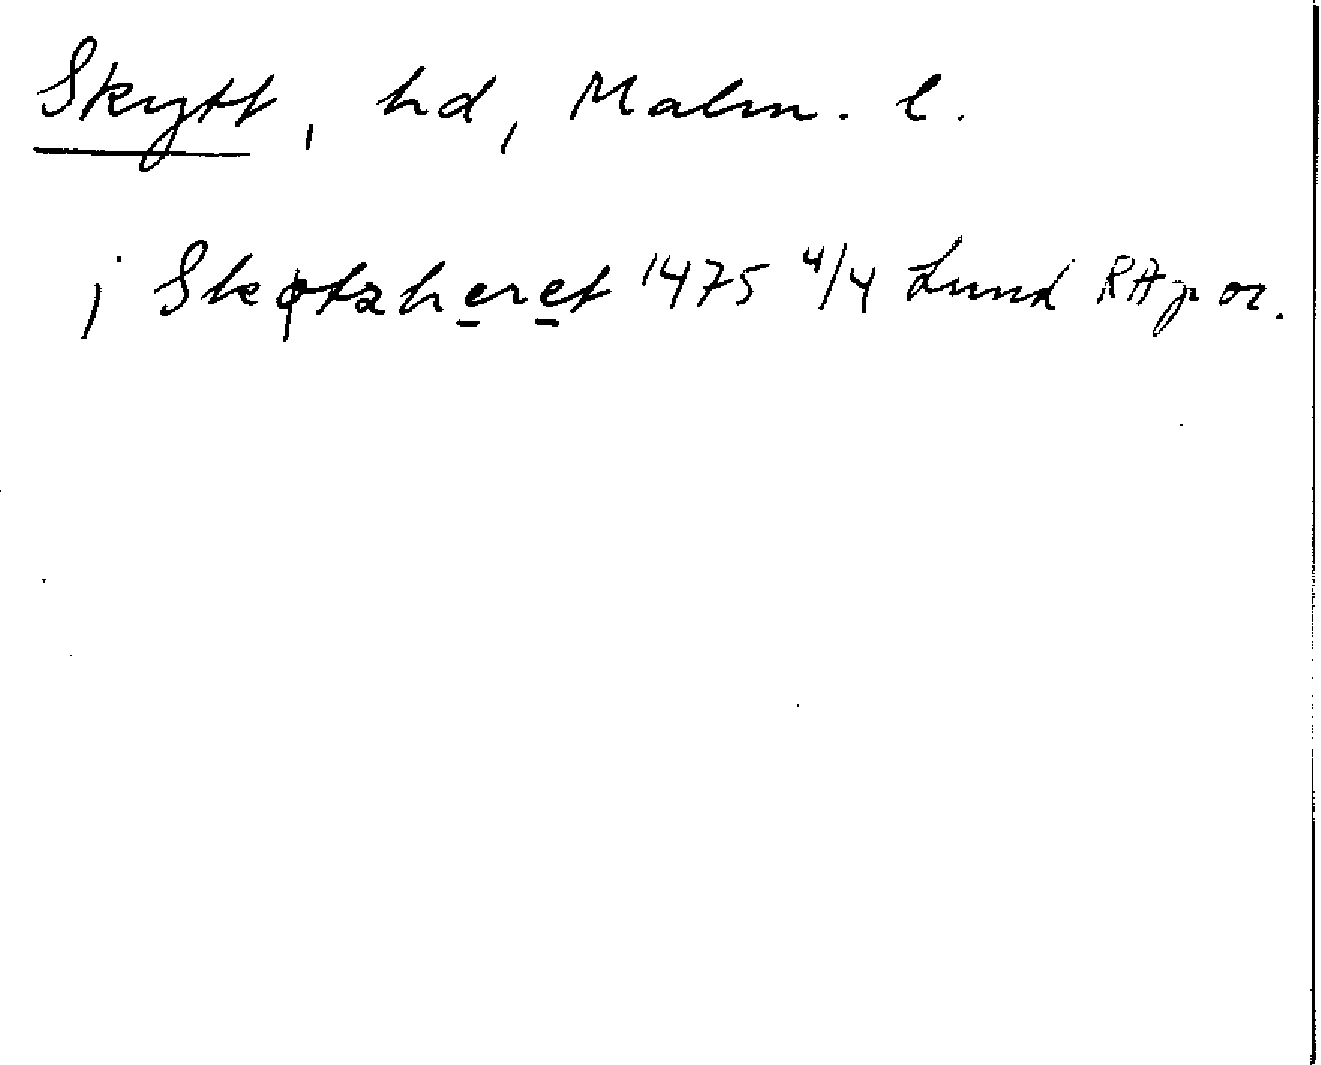 Skytt, hd, Malm. l.
j Skøtzheret 1475 4/4 Lund RAp or.